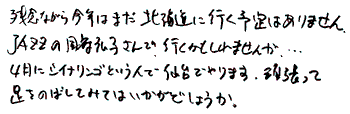 残念ながら今年はまだ北海道に行く予定はありません。
JAZZの国府弘子さんで行くかもしれませんが、…
4月にシイナリンゴという人で仙台でやります。頑張って
足をのばしてみてはいかがでしょうか。